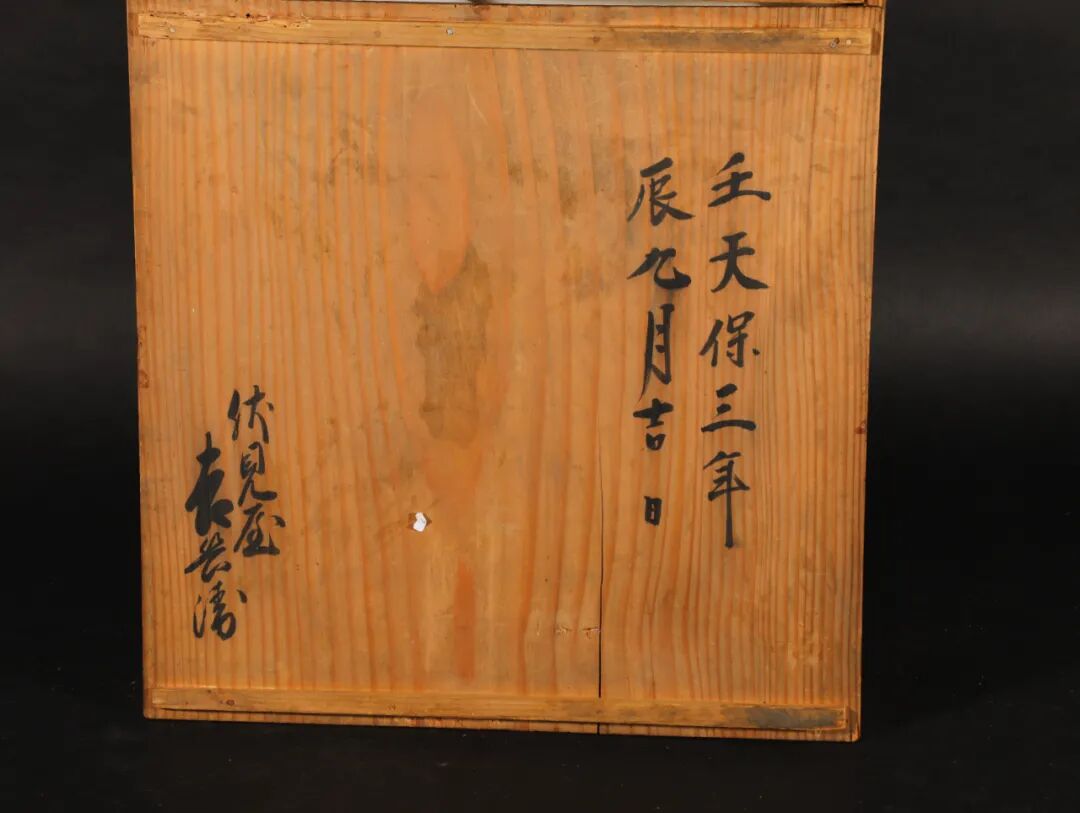 壬天保三年
辰九月吉日
伏見屋
吉兵衛